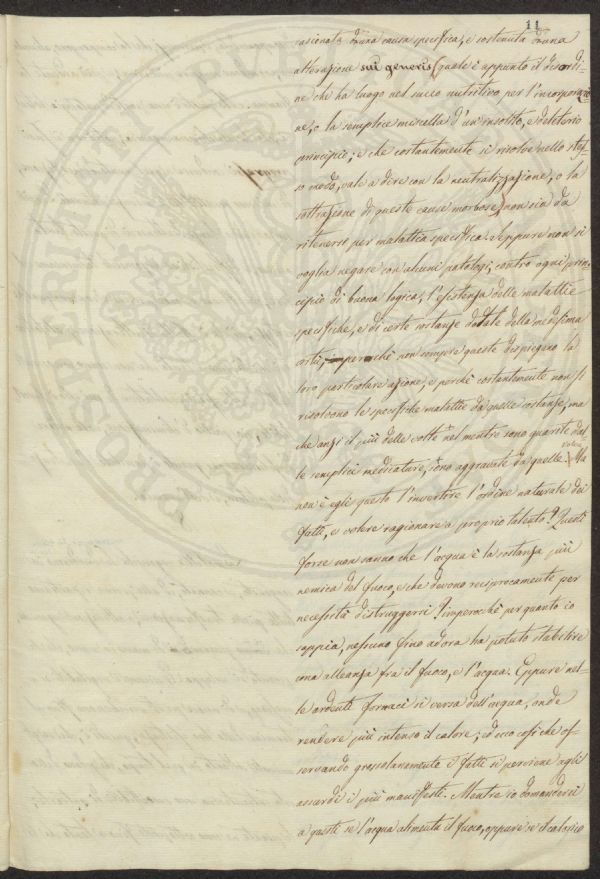 11
casionata d'una causa specifica, e sostenuta d'una
alterazione sui generis (quale è appunto il disordi-
ne che ha luogo nel succo nutritivo per l'incorporazio
ne, o la semplice miscella d'un insolito, e deleterio
principio; e che costantemente si risolve nello stes-
so modo, vale a dire con la neutralizzazione, o la
sottrazione di queste cause morbose) non sia da
ritenersi per malattia specifica. Seppure non si
voglia negare con alcuni patologi, contro ogni prin-
cipio di buona logica, l'esistenza delle malattie
specifiche, e di certe sostanze dotate della medesima
virtù, imperochè non sempre queste dispiegano la
loro particolare azione, e perchè costantemente non si
risolvono le specifiche malattie da quelle sostanze, ma
che anzi il più delle volte nel mentre sono guarite dal-
le semplici medicature, sono aggravate da quelle. Ma
non è egli questo l'invertire l'ordine naturale dei
fatti, e volere ragionare a proprio talento? Questi
forze non sanno che l'acqua è la sostanza più
nemica del fuoco, e che devono reciprocamente per
necessità distruggersi? imperochè per quanto io
sappia, nessuno fino ad ora ha potuto stabilire
una alleanza fra il fuoco, e l'acqua. Eppure nel-
le ardenti fornaci si versa dell'acqua, onde
rendere più intenso il calore; ed ecco così che os-
servando grossolanamente i fatti si perviene agli
assurdi i più manifesti. Mentre io domanderei
a questi se l'acqua alimenta il fuoco, oppure se il calorico